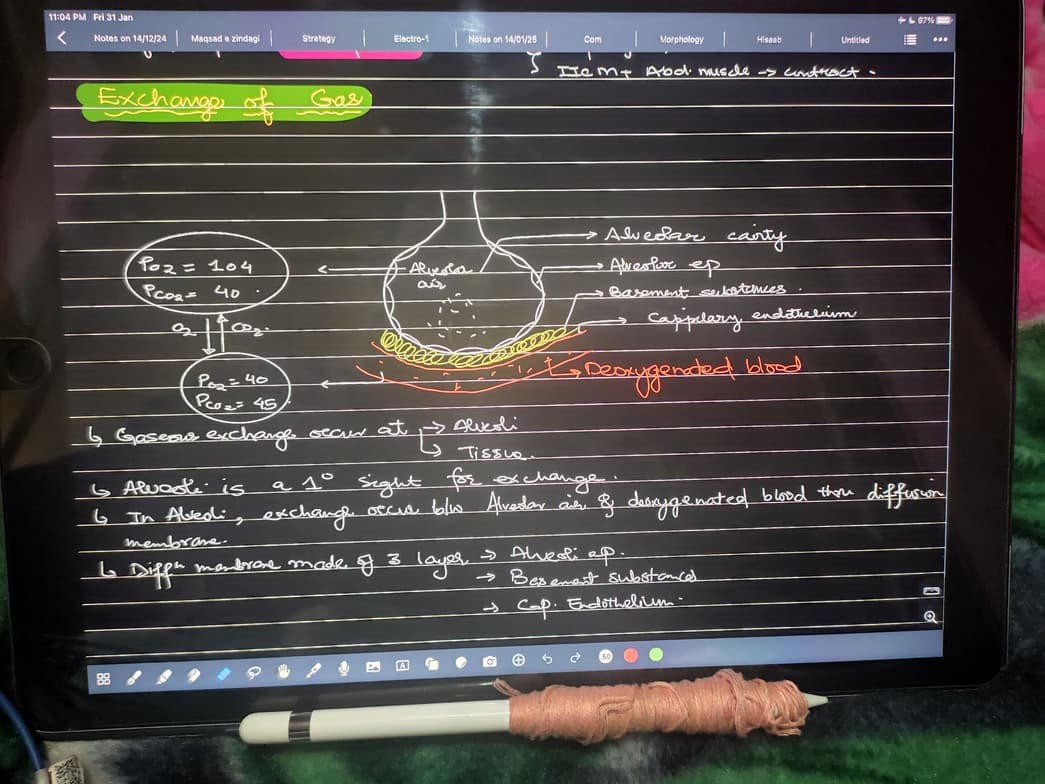 11:04 PM Fri 31 Jan
97%
Notes on 14/12/24 Maqsad e zindagi Strategy Electro-1 Notes on 14/01/25 Com Morphology Hisaab Untitled
IICM + Abd. muscle → contract.
Exchange of Gas
Alveolar cavity
Alveolar ep
Basement substances.
Cappilary endothelium
Deoxygenated blood
Alveolar
air
PO2 = 104
PCO2 = 40
O2 CO2
PO2 = 40
PCO2 = 45
↳ Gaseous exchange occur at → Alveoli
↳ Tissue.
↳ Alveoli is a 1° sight for exchange.
↳ In Alveoli, exchange occur b/w Alveolar air & deoxygenated blood thru diffusion
membrane.
↳ Diffn membrane made of 3 layer → Alveoli ep.
→ Basement substances
→ Cap. Endothelium.
50